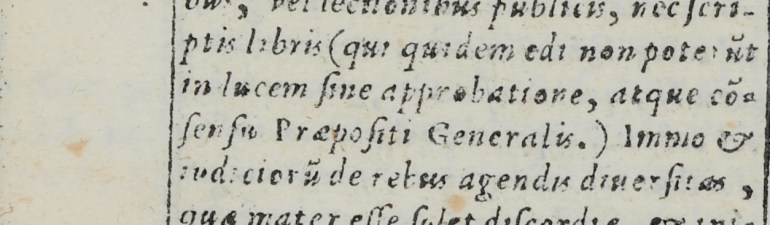 bus, vel lectionibus publicis, nec scri-
ptis libris (qui quidem edi non poterūt
in lucem sine approbatione, atque cō-
sensu Præpositi Generalis.) Immo &
iudiciorū de rebus agendis diuersitas,
quæ mater esse solet discordiæ, & ini-